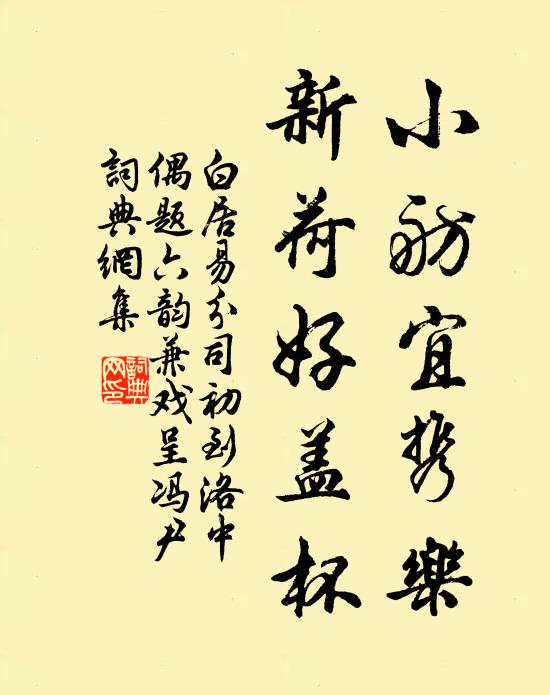 小舫宜携樂
新荷好盖杯
白居易分司初到洛中
偶题六韵兼戏呈冯尹
詞典網集
詞典
网印